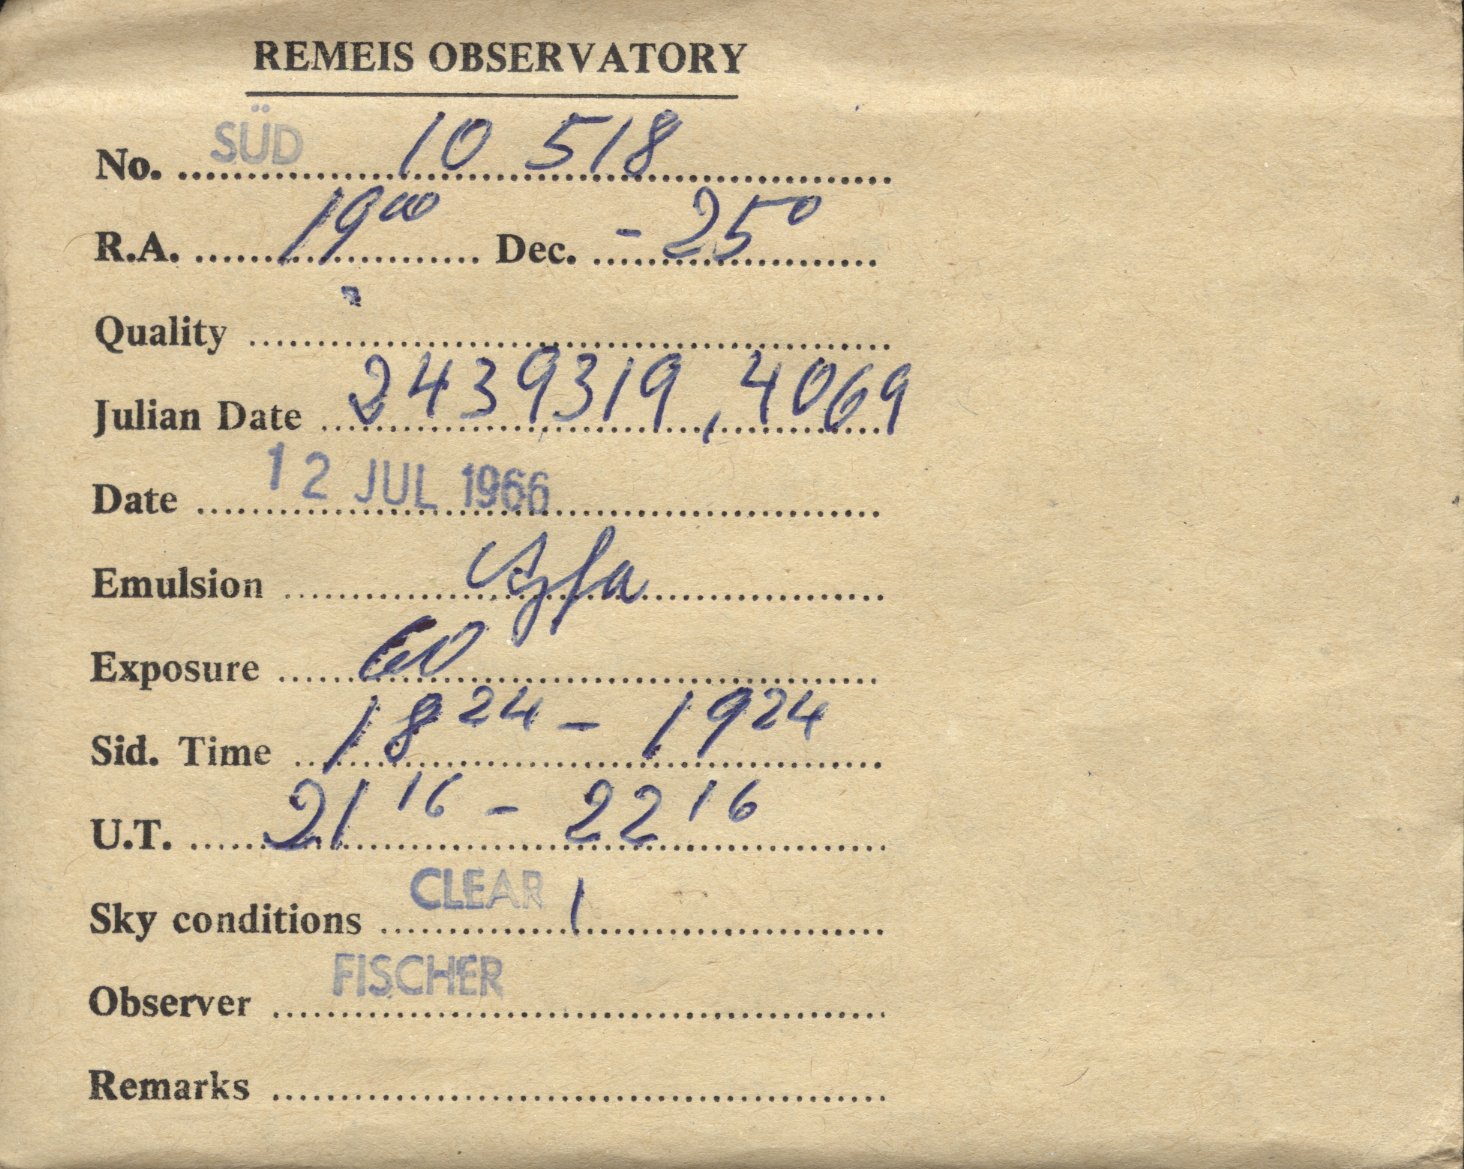 REMEIS OBSERVATORY
No. SÜD 10 518
R.A. 19⁰⁰ Dec. -25⁰
Quality
Julian Date 2439319,4069
Date 12 JUL 1966
Emulsion Agfa
Exposure 60
Sid. Time 18²⁴ - 19²⁴
U.T. 21¹⁶ - 22¹⁶
Sky conditions CLEAR 1
Observer FISCHER
Remarks